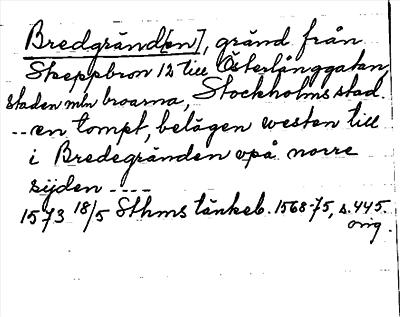 Bredgränd[en], gränd från
Skeppbron 12 till Österlånggatan,
staden mln broarna, Stockholms stad.
--en tompt, belägen westen till
i Bredegränden vpå norre
sijden ----
1573 18/5 Sthms tänkeb. 1568-75, s.445.
orig.